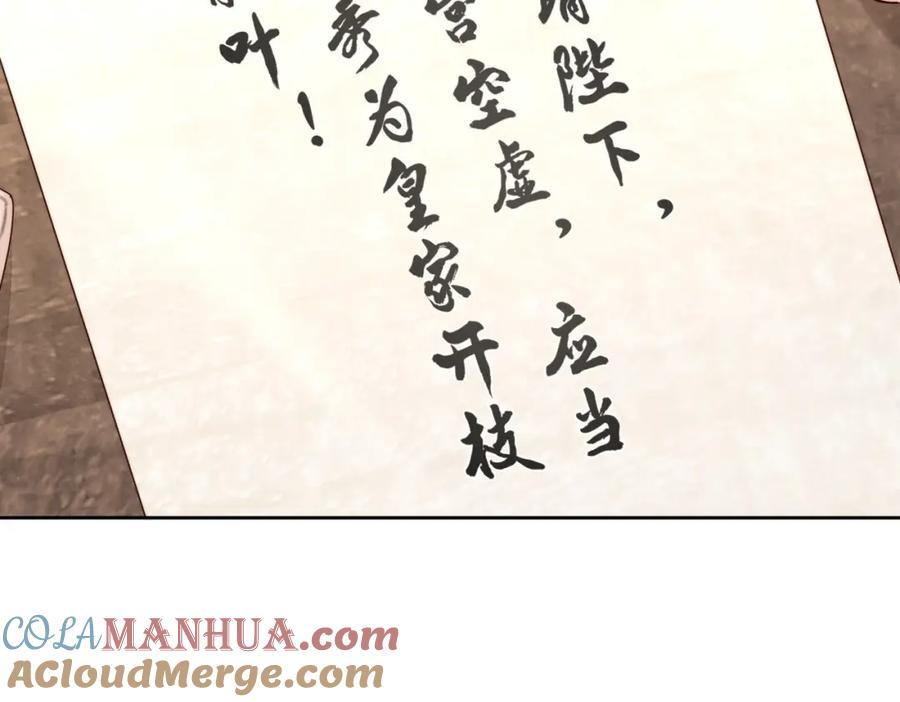 请陛下，
宫空虚，应当
秀为皇家开枝
叶！
COLAMANHUA.com
ACloudMerge.com